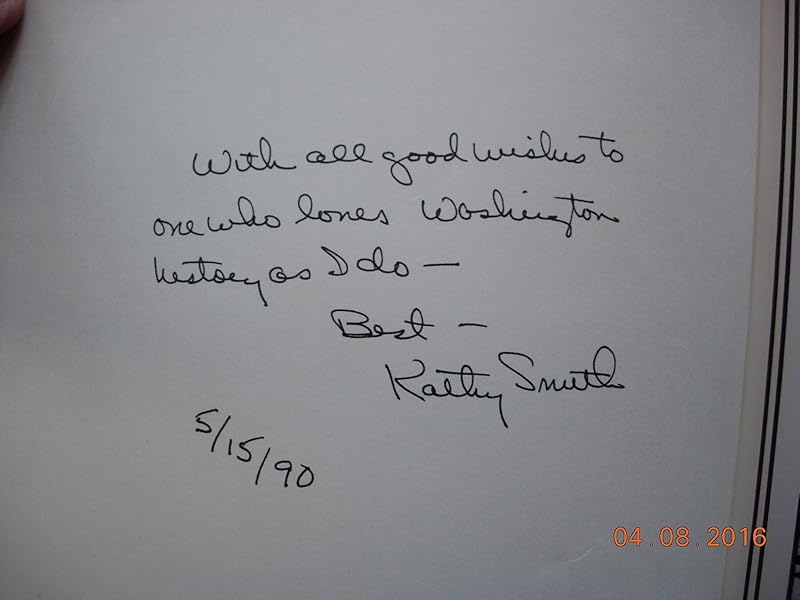 With all good wishes to
one who loves Washington
history as I do —
Best —
Kathy Smith
5/15/90
04.08.2016